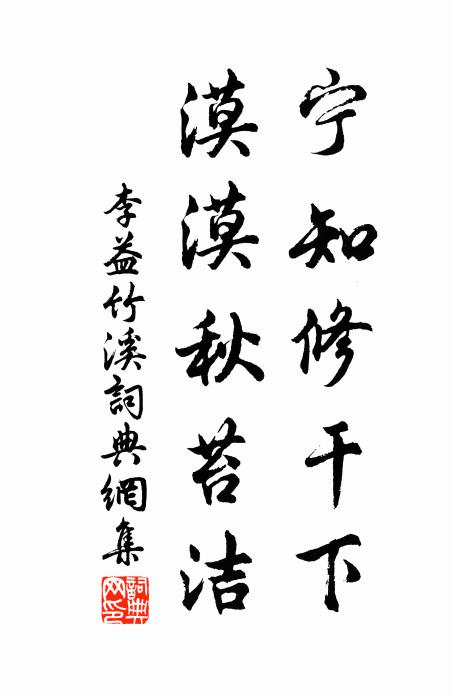 宁知修干下
漠漠秋苔洁
李益竹溪詞典網集
詞典
网印